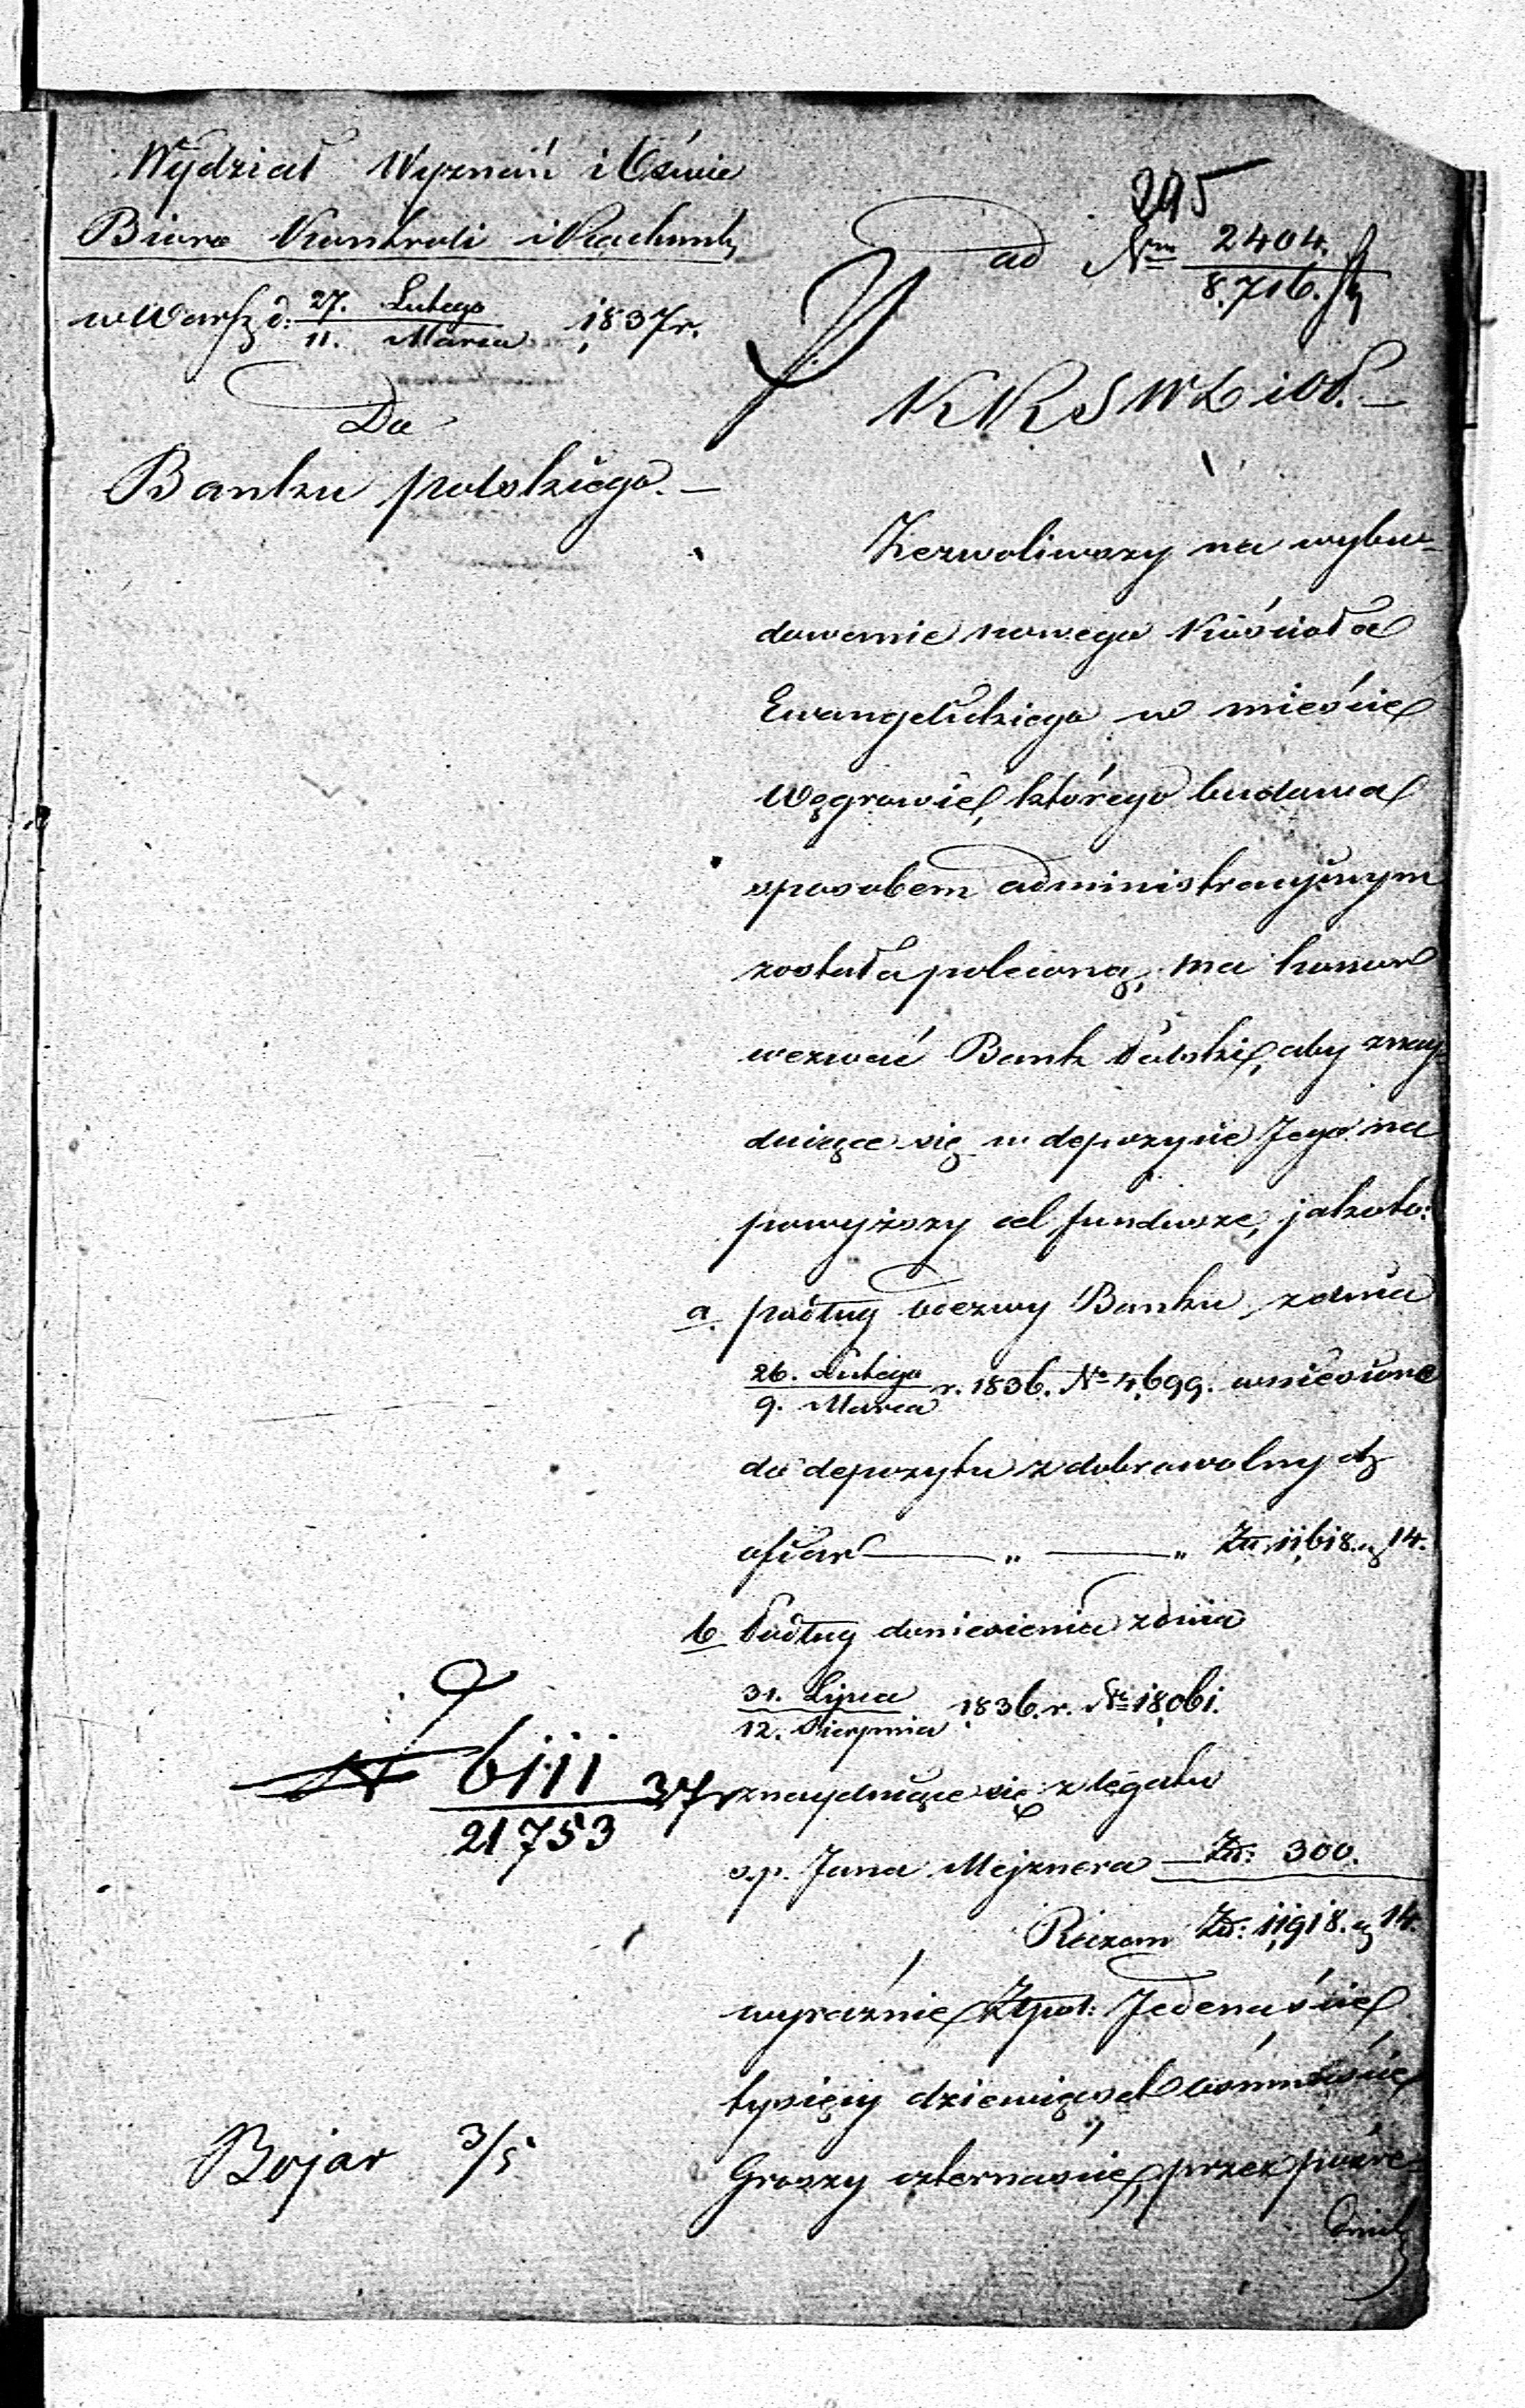 Wydział Wyznań i Oświe
Biuro Kontroli i Rachunk
295
ad Nrm 2404./8,716.
w Warsz d: 27. Lutego/11. Marca 1837 r.
KRSWD i OP.
Do
Banku polskiego.
Zezwoliwszy na wybu-
dowanie nowego Kościoła
Ewangelickiego w mieście
Węgrowie, którego budowa
sposobem administracyjnym
została poleconą, ma honor
wezwać Bank Polski, aby znay-
duiące się w depozycie Jego na
powyższy cel fundusze, jakoto:
a. podług odezwy Banku z dnia
26. Lutego/9. Marca r. 1836. No 4,699. wniesione
do depozytu z dobrowolnych
ofiar — " — " Zł: 11,618. g 14.
b Podług doniesienia z dnia
31. Lipca/12. Sierpnia 1836. r. Nr 18,061.
znayduiące się z legatu
ś.p. Jana Mejznera — Zł: 300.
Razem Zł: 11,918. g 14.
6111/21753 37 r
wyraźnie Złpol: Jedenaście
tysięcy dziewięćset ośmnaście
Groszy czternaście, przez pośre-
Bojar 3/5
dnic